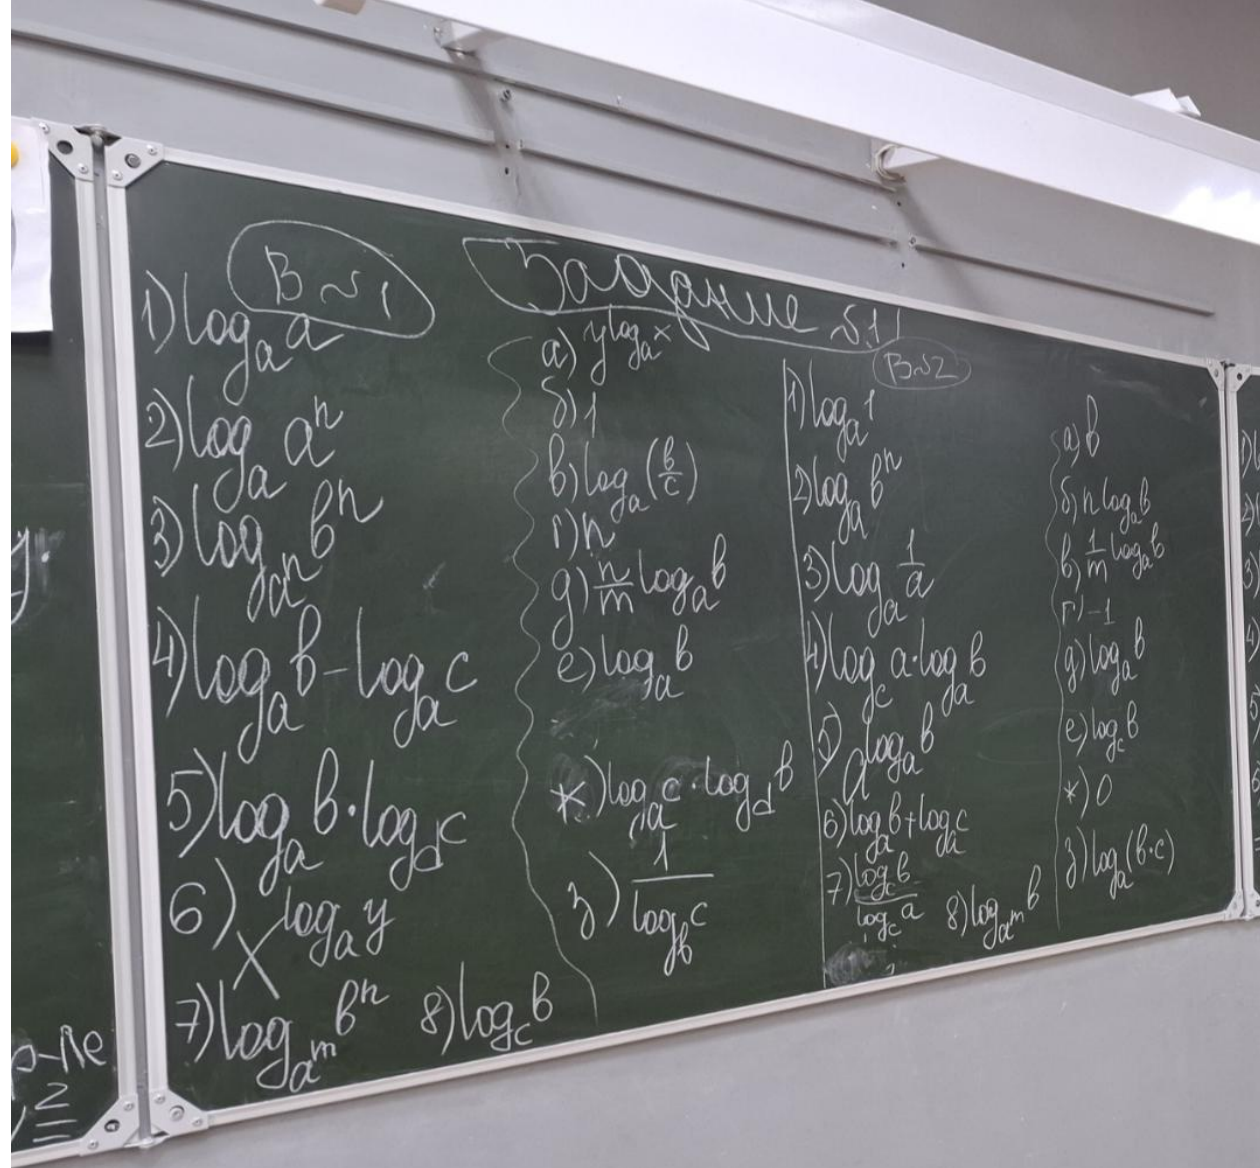 Задание №1
В №1
1) log_a a
2) log_a a^n
3) log_{a^n} b^n
4) log_a b - log_a c
5) log_a b · log_d c
6) x^{log_a y}
7) log_{a^m} b^n
8) log_c b
а) y^{log_a x}
б) 1
в) log_a (b/c)
г) n
д) n/m log_a b
е) log_a b
ж) log_a c · log_d b
з) 1/(log_b c)
В №2
1) log_a 1
2) log_a b^n
3) log_a 1/a
4) log_c a · log_a b
5) a^{log_a b}
6) log_a b + log_a c
7) (log_c b)/(log_c a)
8) log_{a^m} b
а) b
б) n log_a b
в) 1/m log_a b
г) -1
д) log_a b
е) log_c b
ж) 0
з) log_a (b·c)